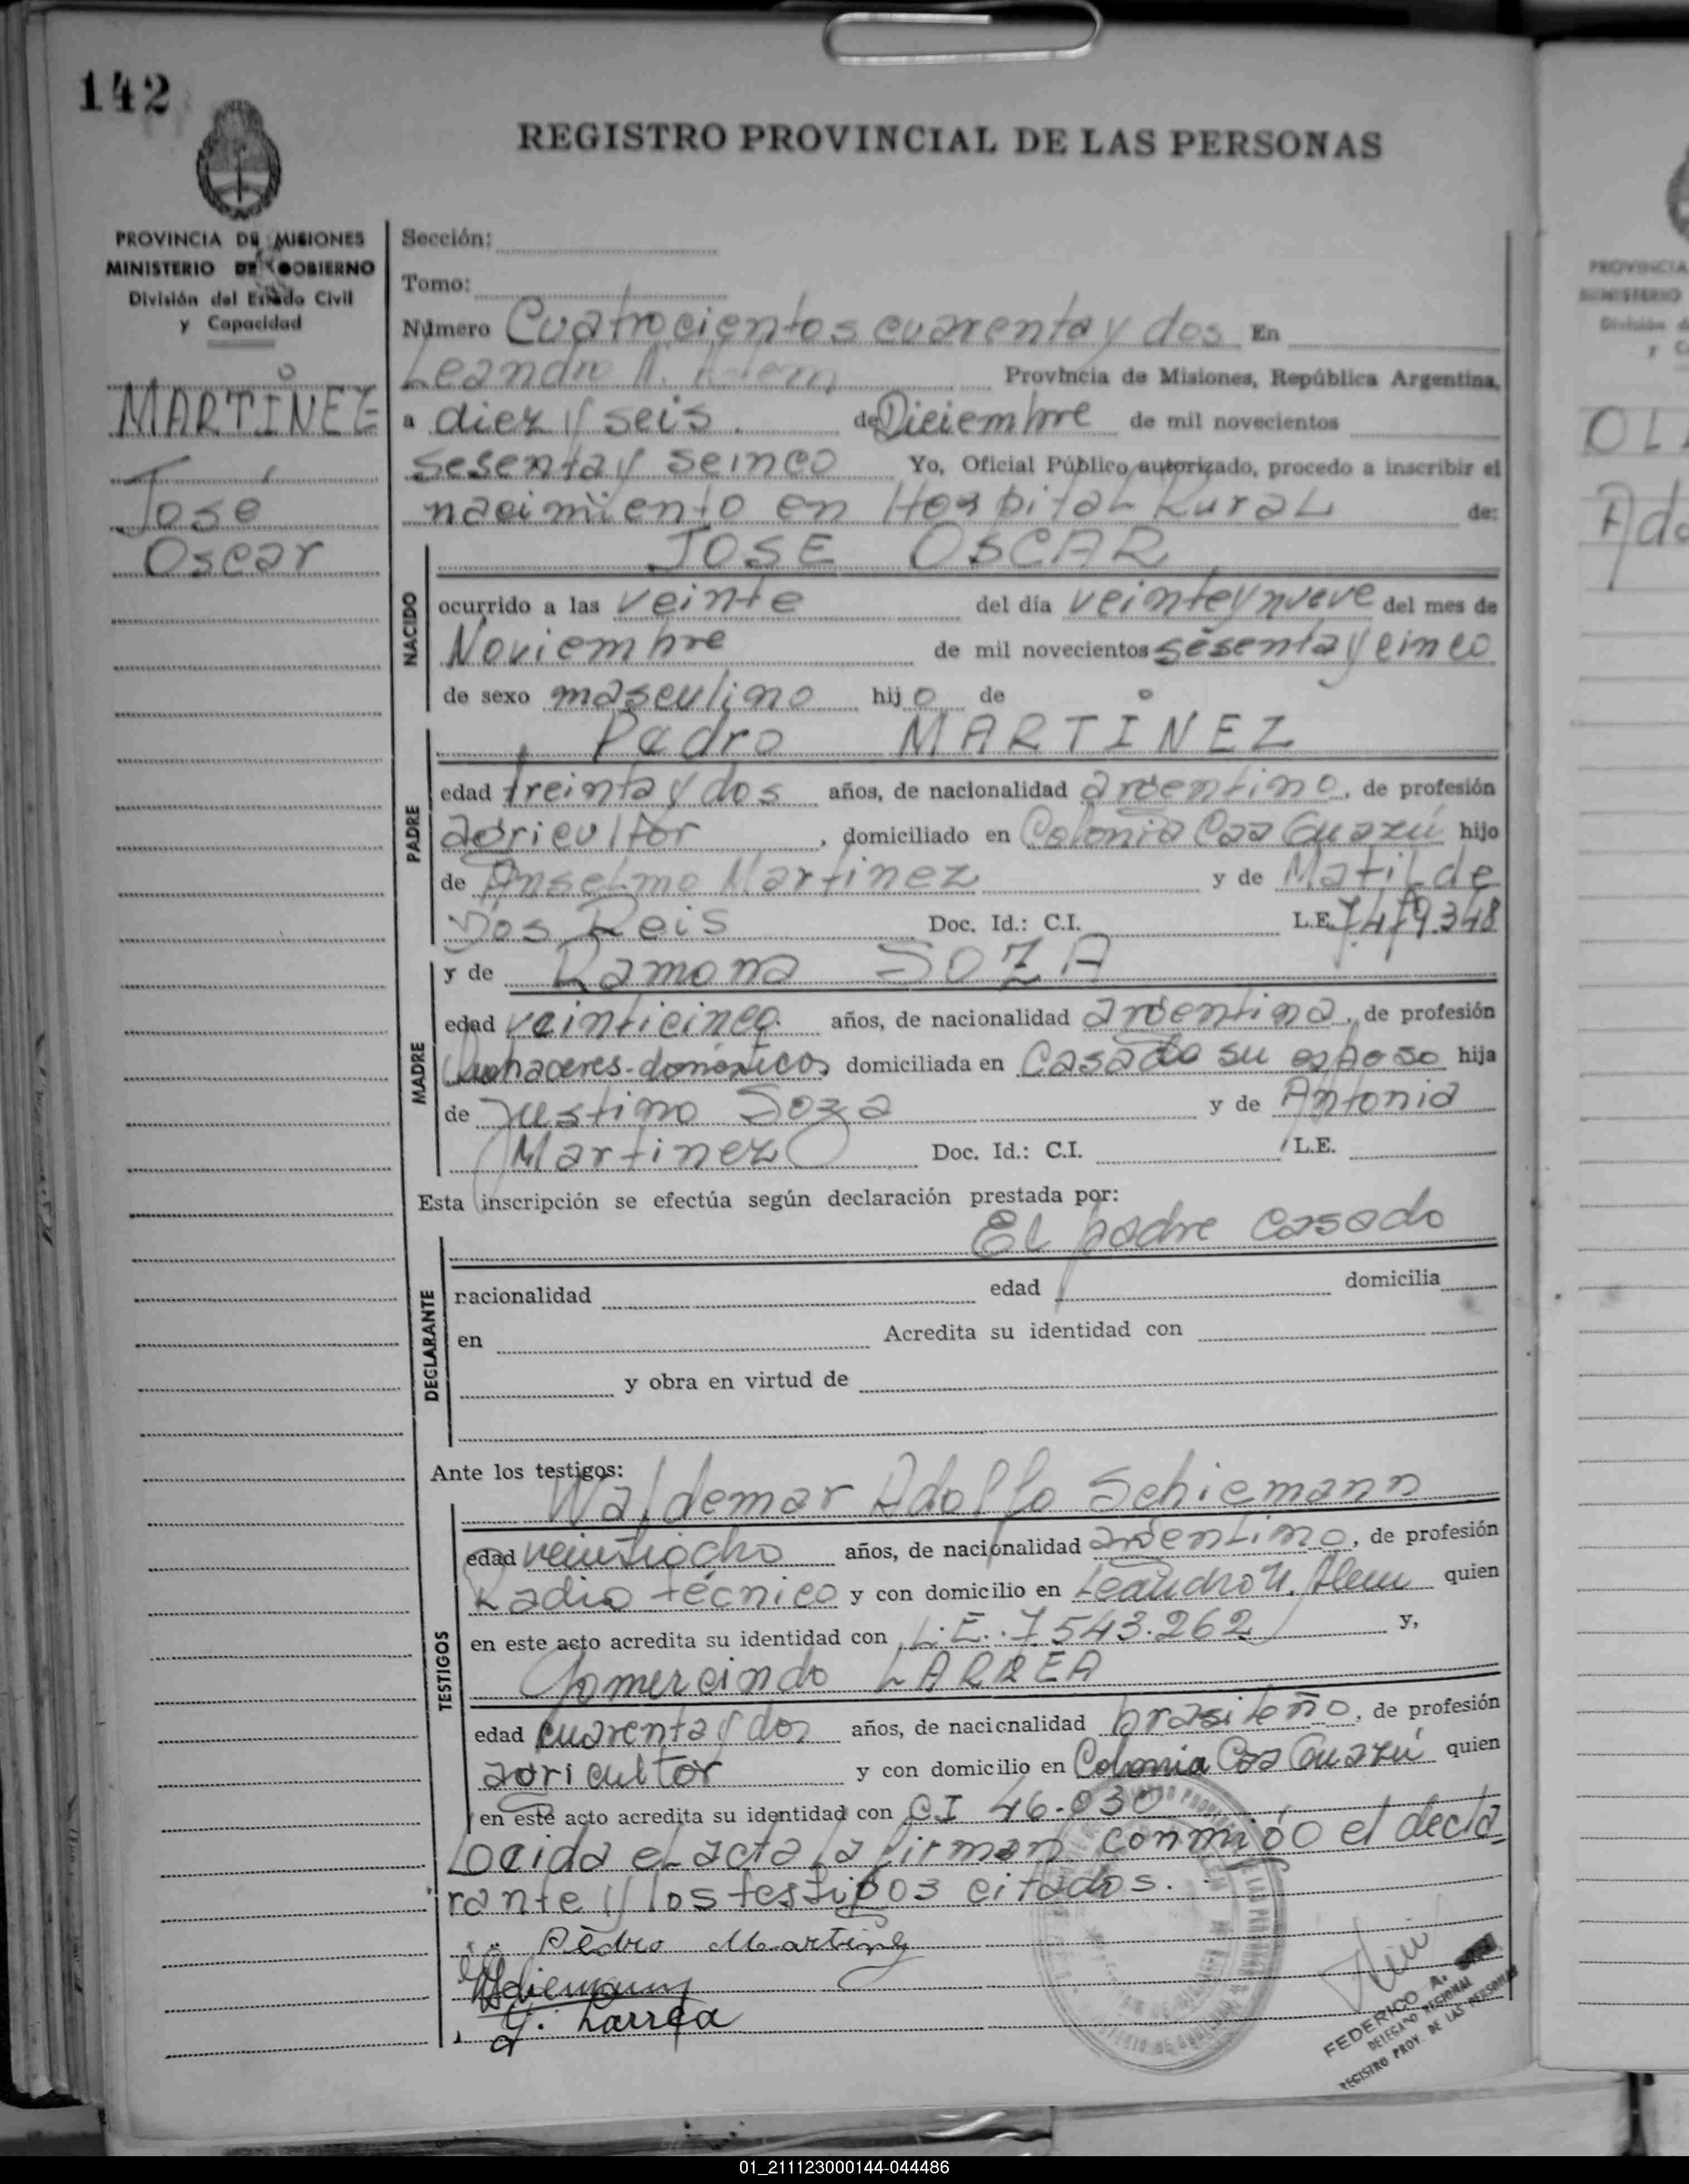 142
REGISTRO PROVINCIAL DE LAS PERSONAS
PROVINCIA DE MISIONES
MINISTERIO DE GOBIERNO
División del Estado Civil
y Capacidad
MARTINEZ
José
Oscar
Sección:
Tomo:
Número Cuatrocientos cuarenta y dos En
Leandro N. Alem Provincia de Misiones, República Argentina,
a diez y seis. de Diciembre de mil novecientos
sesenta y seinco Yo, Oficial Público autorizado, procedo a inscribir el
nacimiento en Hospital Rural de:
NACIDO
JOSE OSCAR
ocurrido a las veinte del día veinteynueve del mes de
Noviembre de mil novecientos sesenta y cinco
de sexo masculino hijo de
PADRE
Pedro MARTINEZ
edad treinta y dos años, de nacionalidad argentino, de profesión
agricultor, domiciliado en Colonia Caa Guazú hijo
de Anselmo Martinez y de Matilde
Dos Reis Doc. Id.: C.I. L.E. 7.479.348
MADRE
y de Ramona SOZA
edad veinticinco. años, de nacionalidad argentina, de profesión
Quehaceres-domésticos domiciliada en Casa de su esposo hija
de Justino Soza y de Antonia
Martinez Doc. Id.: C.I. L.E.
Esta inscripción se efectúa según declaración prestada por:
El padre casado
DECLARANTE
nacionalidad edad domicilia
en Acredita su identidad con
y obra en virtud de
Ante los testigos:
TESTIGOS
Waldemar Adolfo Schiemann
edad veintiocho años, de nacionalidad argentino, de profesión
Radio técnico y con domicilio en Leandro N. Alem quien
en este acto acredita su identidad con L.E. 7.543.262 y,
Gomercindo LARREA
edad cuarenta y dos años, de nacionalidad brasileño, de profesión
agricultor y con domicilio en Colonia Caa Guazú quien
en este acto acredita su identidad con CI 46.030
Locida el acta la firman conmigo el decla
rante y los testigos citados.
Pedro Martinez
Schiemann
G. Larrea
FEDERICO A.
DELEGADO REGIONAL
REGISTRO PROV. DE LAS PERSONAS
PROVINCIA
MINISTERIO
División d
y C
OLI
Ado
01_211123000144-044486